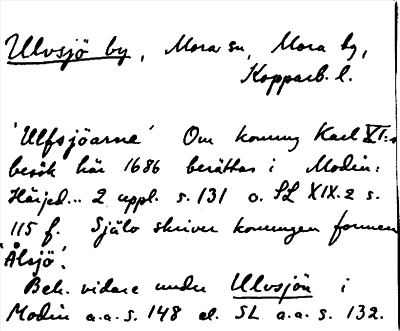 Ulvsjö by, Mora sn, Mora tg,
Kopparb. l.
'Ulfsjöarne' Om konung Karl XI:s
besök här 1686 berättas i Modin:
Härjed... 2 uppl. s. 131 o. SL XIX.2 s.
115 f. Själv skriver konungen formen
'Ålsjö'.
Beh. vidare under Ulvsjön i
Modin a.a. s. 148 el. SL a.a. s. 132.